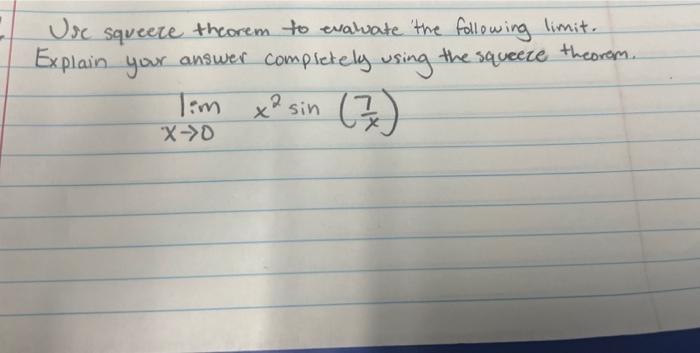 Use squeeze theorem to evaluate the following limit.
Explain your answer completely using the squeeze theorem.
lim x² sin (7/x)
x→0